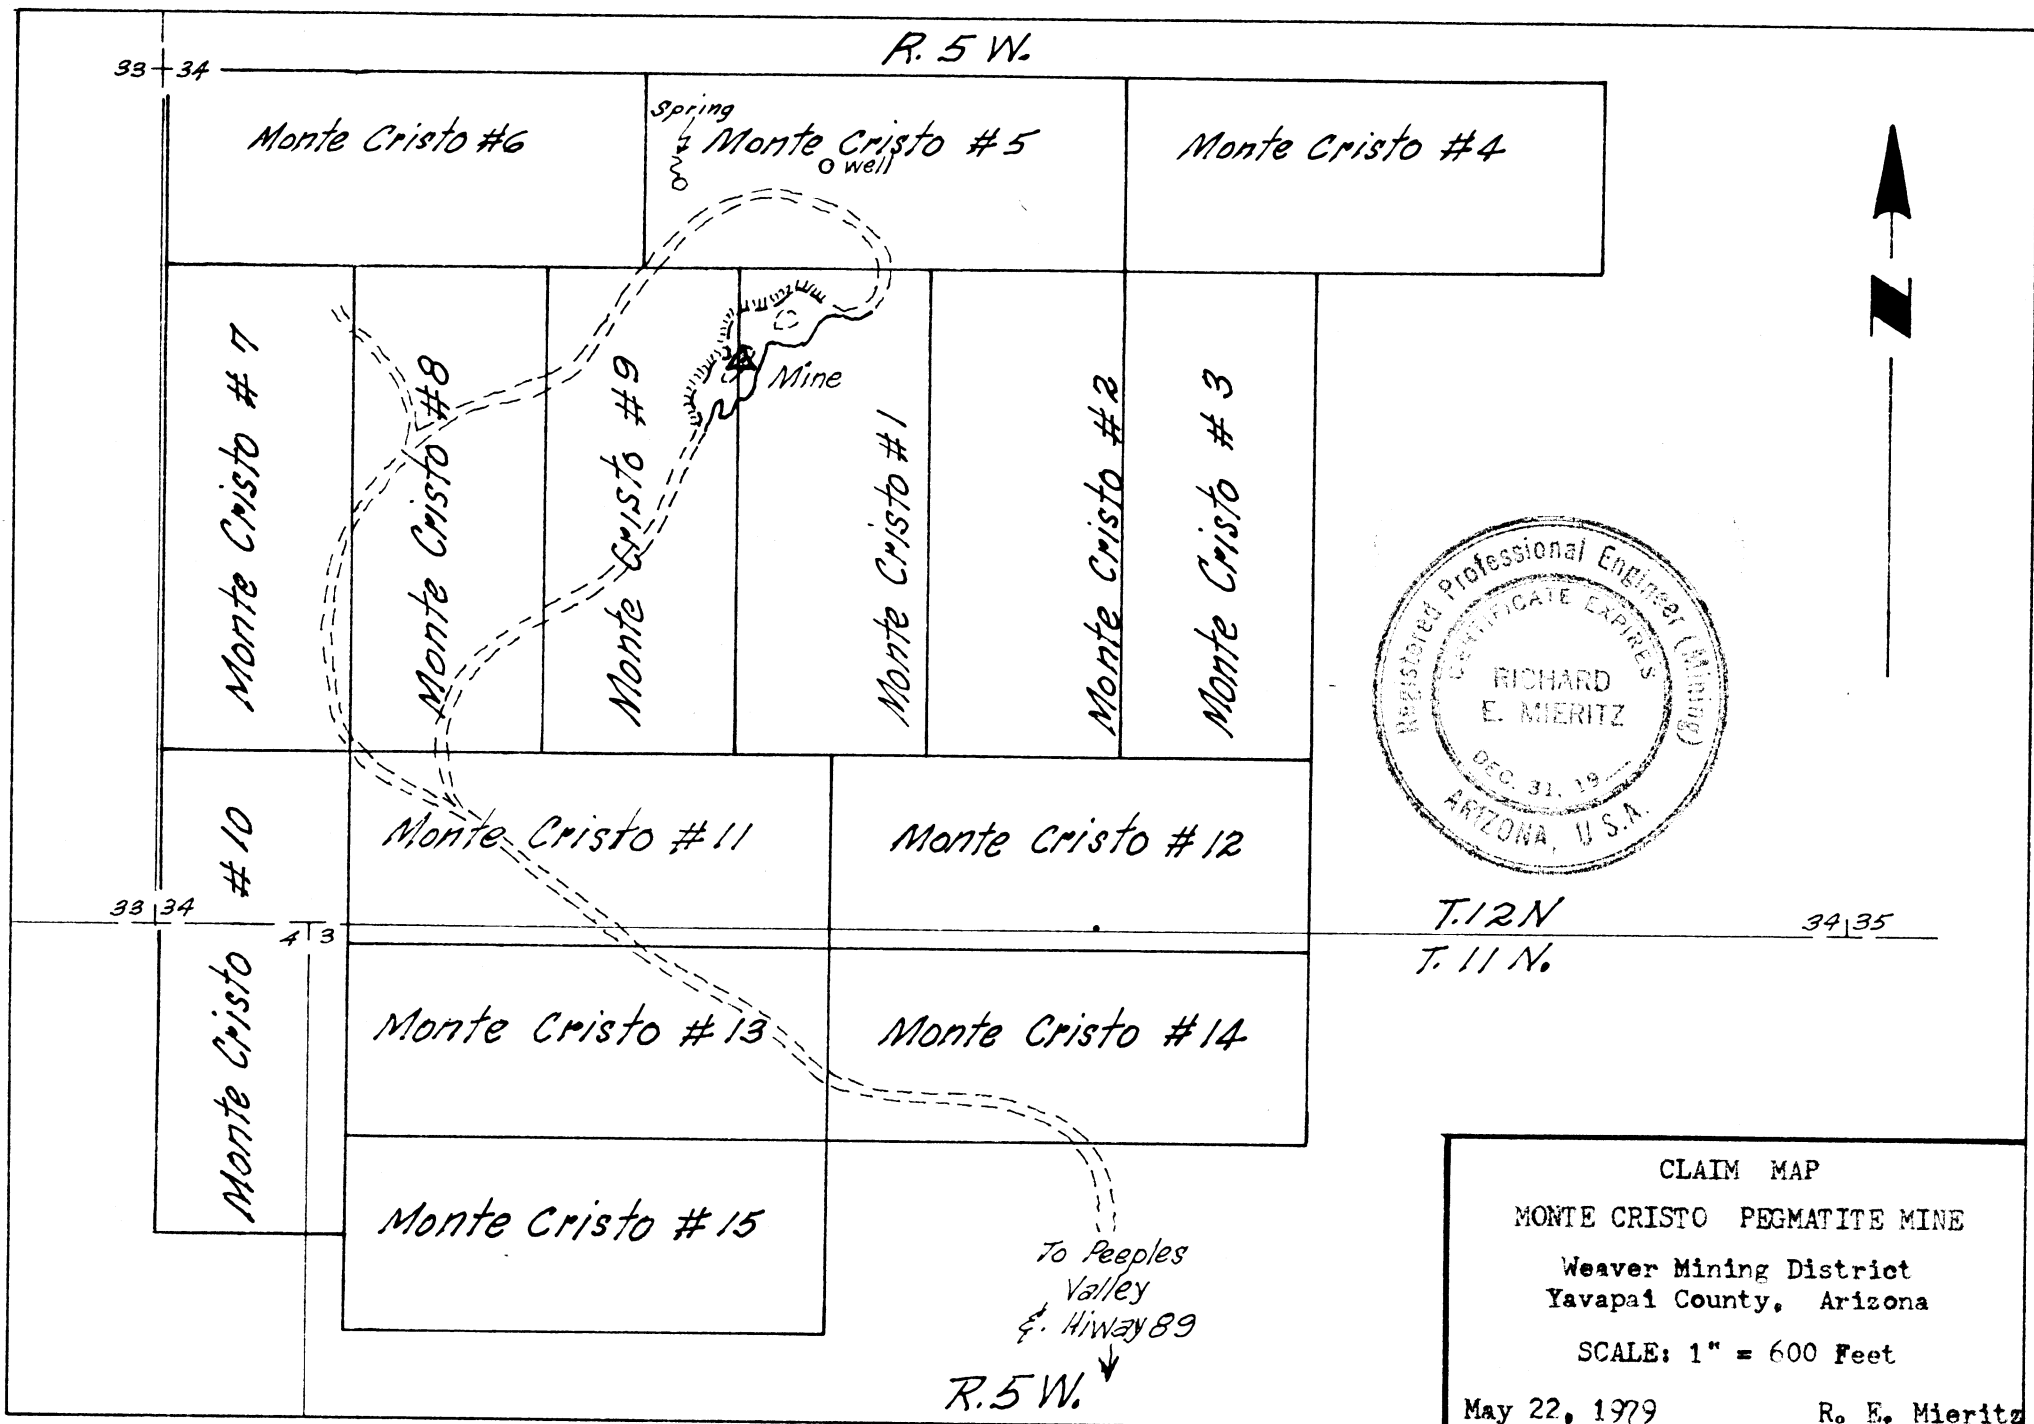 R. 5 W.
33 34
Spring
Monte Cristo #6
Monte Cristo #5
Monte Cristo #4
well
N
Monte Cristo #7
Monte Cristo #8
Monte Cristo #9
Mine
Monte Cristo #1
Monte Cristo #2
Monte Cristo #3
Registered Professional Engineer (Mining)
CERTIFICATE EXPIRES
RICHARD
E. MIERITZ
DEC. 31, 19
ARIZONA, U.S.A.
Monte Cristo #10
Monte Cristo #11
Monte Cristo #12
33 34
4 3
T.12N
34 35
T. 11 N.
Monte Cristo #13
Monte Cristo #14
Monte Cristo #15
To Peeples
Valley
&. Hiway 89
R.5 W.
CLAIM MAP
MONTE CRISTO PEGMATITE MINE
Weaver Mining District
Yavapai County, Arizona
SCALE: 1" = 600 Feet
May 22, 1979 R. E. Mieritz